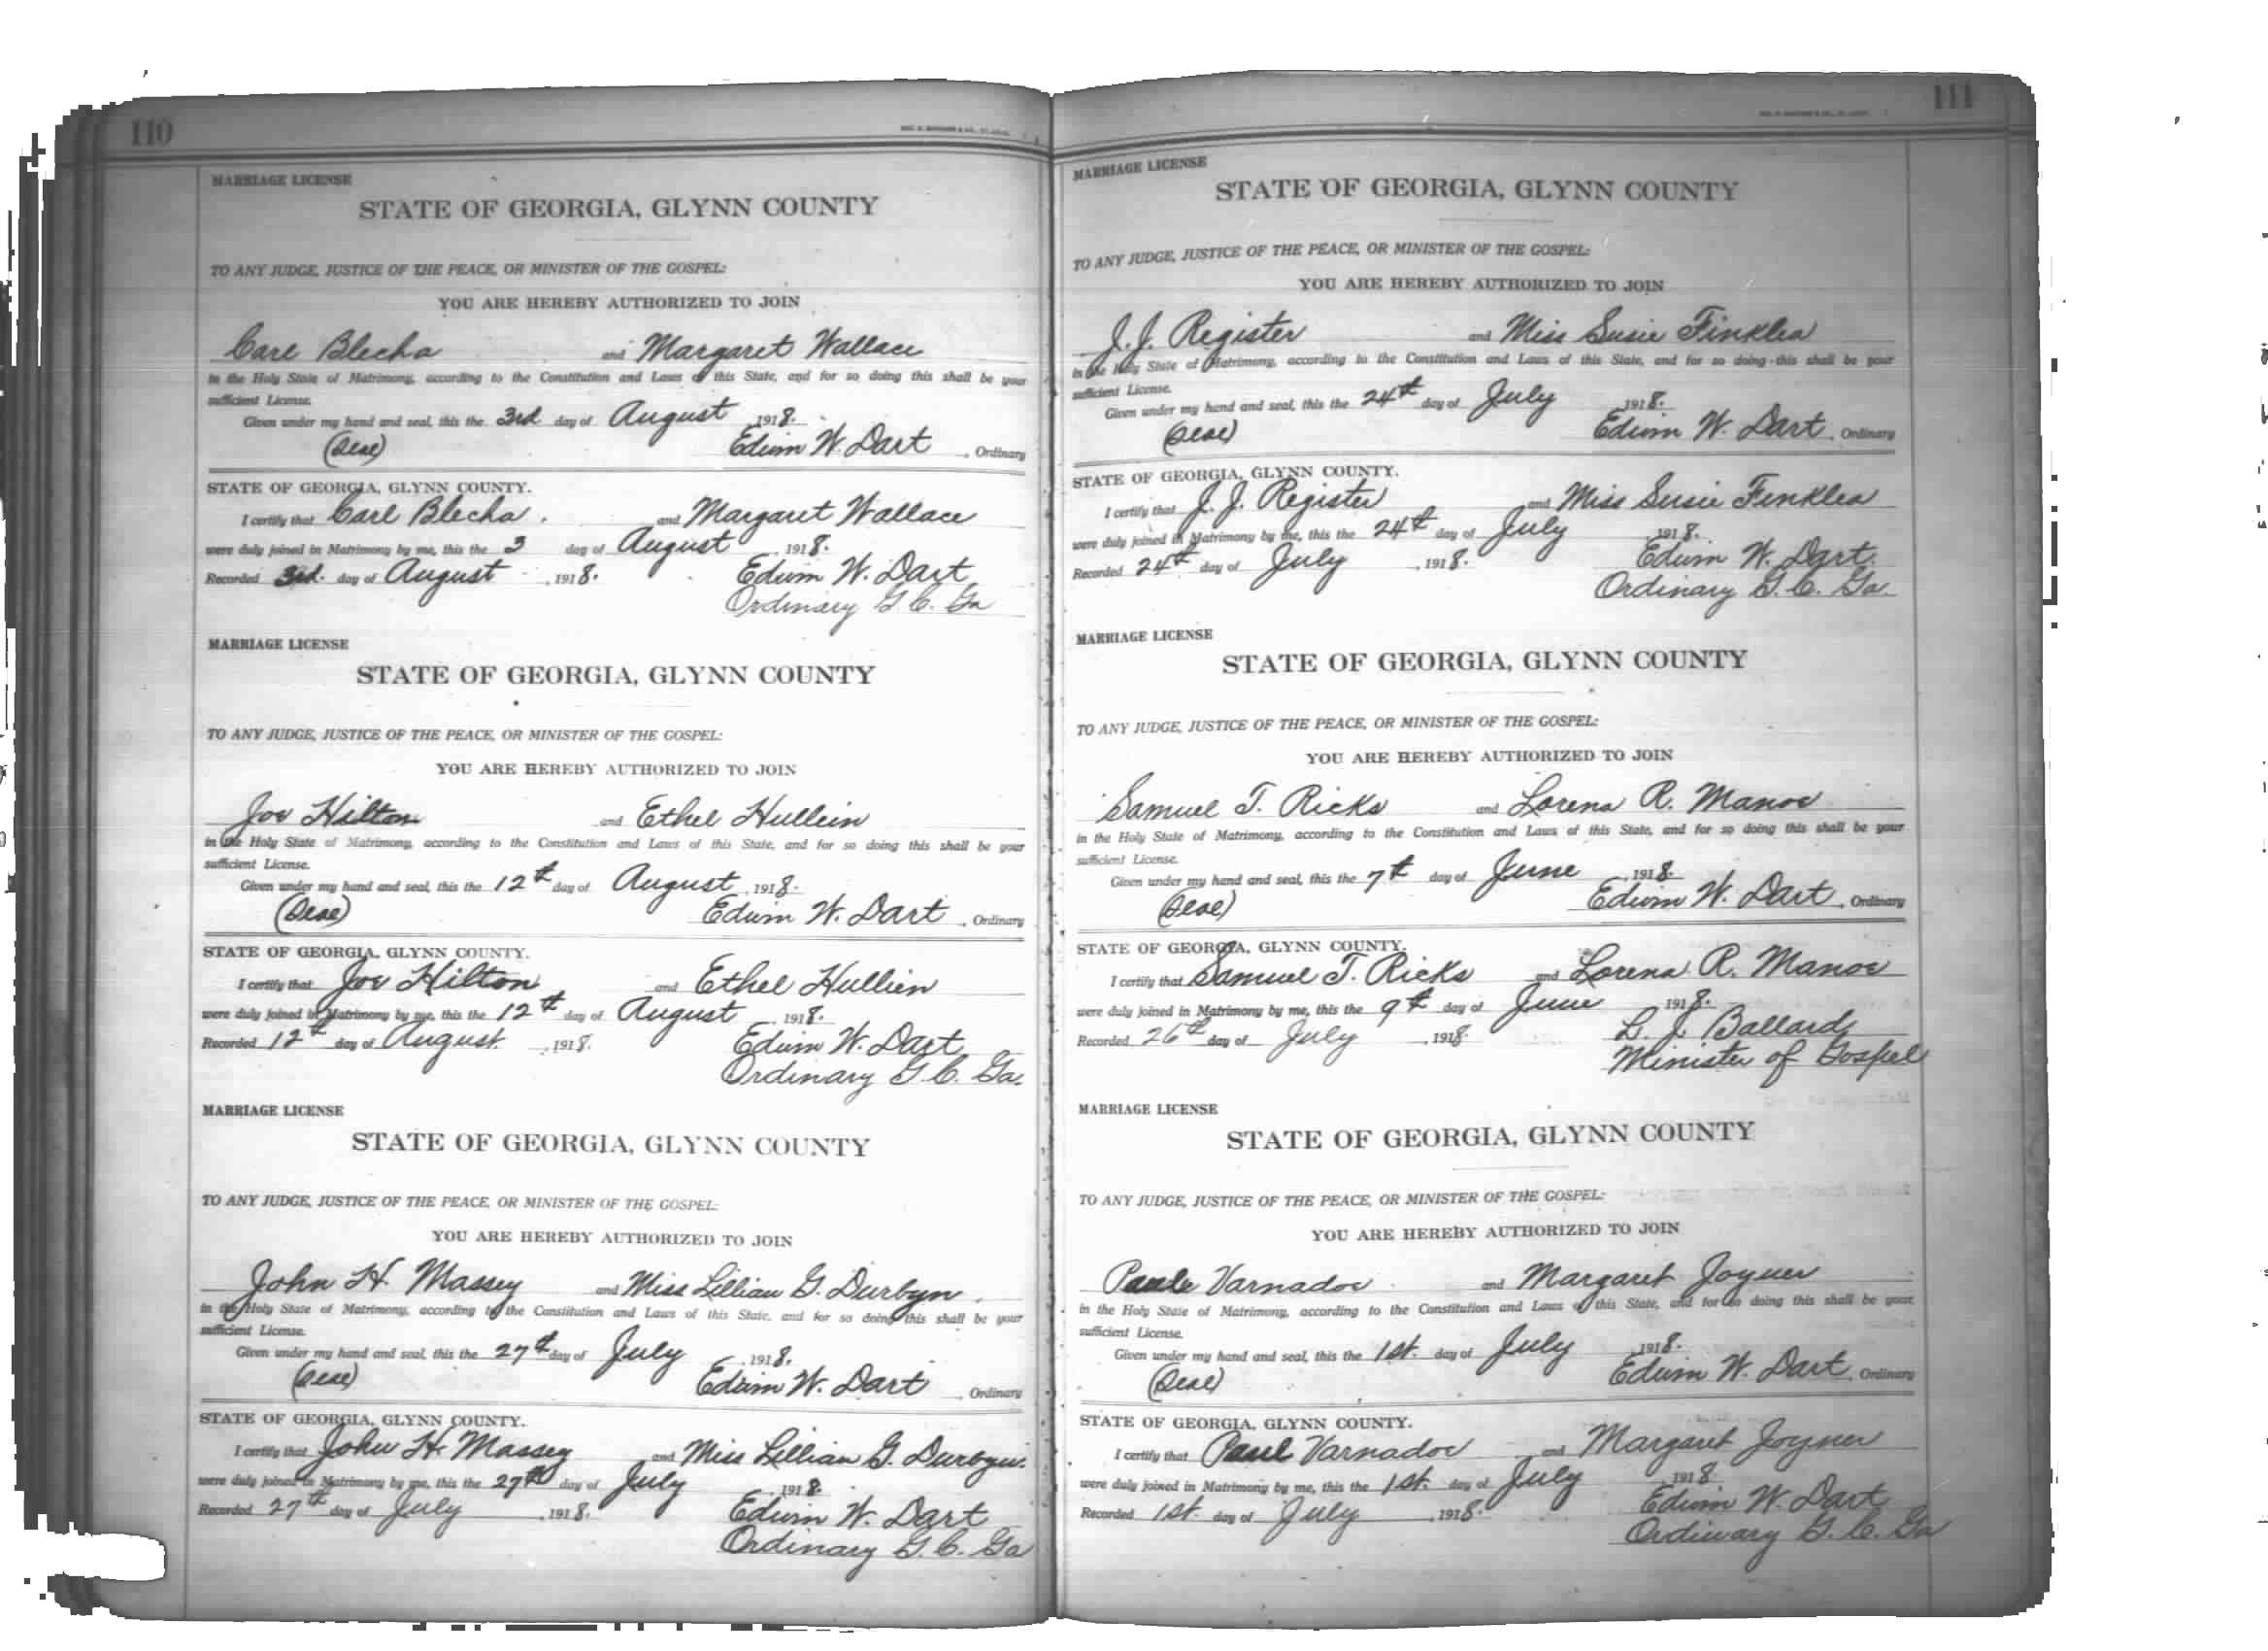 110
MARRIAGE LICENSE
STATE OF GEORGIA, GLYNN COUNTY
TO ANY JUDGE, JUSTICE OF THE PEACE, OR MINISTER OF THE GOSPEL:
YOU ARE HEREBY AUTHORIZED TO JOIN
Carl Blecha and Margaret Wallace
in the Holy State of Matrimony, according to the Constitution and Laws of this State, and for so doing this shall be your
sufficient License.
Given under my hand and seal, this the 3rd day of August, 1918.
(Seal) Edwin W. Dart, Ordinary
STATE OF GEORGIA, GLYNN COUNTY.
I certify that Carl Blecha. and Margaret Wallace
were duly joined in Matrimony by me, this the 3 day of August, 1918.
Recorded 3rd. day of August, 1918. Edwin W. Dart
Ordinary G. C. Ga
MARRIAGE LICENSE
STATE OF GEORGIA, GLYNN COUNTY
TO ANY JUDGE, JUSTICE OF THE PEACE, OR MINISTER OF THE GOSPEL:
YOU ARE HEREBY AUTHORIZED TO JOIN
Joe Hilton and Ethel Hullein
in the Holy State of Matrimony, according to the Constitution and Laws of this State, and for so doing this shall be your
sufficient License.
Given under my hand and seal, this the 12th day of August, 1918.
(Seal) Edwin W. Dart, Ordinary
STATE OF GEORGIA, GLYNN COUNTY.
I certify that Joe Hilton and Ethel Hullien
were duly joined in Matrimony by me, this the 12th day of August, 1918.
Recorded 12th day of August., 1918. Edwin W. Dart
Ordinary G. C. Ga.
MARRIAGE LICENSE
STATE OF GEORGIA, GLYNN COUNTY
TO ANY JUDGE, JUSTICE OF THE PEACE, OR MINISTER OF THE GOSPEL:
YOU ARE HEREBY AUTHORIZED TO JOIN
John H. Massey and Miss Lillian G. Durbyn.
in the Holy State of Matrimony, according to the Constitution and Laws of this State, and for so doing this shall be your
sufficient License.
Given under my hand and seal, this the 27th day of July, 1918.
(Seal) Edwin W. Dart, Ordinary
STATE OF GEORGIA, GLYNN COUNTY.
I certify that John H. Massey and Miss Lillian G. Durbyn.
were duly joined in Matrimony by me, this the 27th day of July, 1918.
Recorded 27th day of July, 1918. Edwin W. Dart
Ordinary G. C. Ga
111
MARRIAGE LICENSE
STATE OF GEORGIA, GLYNN COUNTY
TO ANY JUDGE, JUSTICE OF THE PEACE, OR MINISTER OF THE GOSPEL:
YOU ARE HEREBY AUTHORIZED TO JOIN
J. J. Register and Miss Susie Finklea
in the Holy State of Matrimony, according to the Constitution and Laws of this State, and for so doing this shall be your
sufficient License.
Given under my hand and seal, this the 24th day of July, 1918.
(Seal) Edwin W. Dart, Ordinary
STATE OF GEORGIA, GLYNN COUNTY.
I certify that J. J. Register and Miss Susie Finklea
were duly joined in Matrimony by me, this the 24th day of July, 1918.
Recorded 24th day of July, 1918. Edwin W. Dart.
Ordinary G. C. Ga.
MARRIAGE LICENSE
STATE OF GEORGIA, GLYNN COUNTY
TO ANY JUDGE, JUSTICE OF THE PEACE, OR MINISTER OF THE GOSPEL:
YOU ARE HEREBY AUTHORIZED TO JOIN
Samuel T. Ricks and Lorena R. Manoe
in the Holy State of Matrimony, according to the Constitution and Laws of this State, and for so doing this shall be your
sufficient License.
Given under my hand and seal, this the 7th day of June, 1918.
(Seal) Edwin W. Dart, Ordinary
STATE OF GEORGIA, GLYNN COUNTY.
I certify that Samuel T. Ricks and Lorena R. Manoe
were duly joined in Matrimony by me, this the 9th day of June, 1918.
Recorded 26th day of July, 1918. L. J. Ballard
Minister of Gospel
MARRIAGE LICENSE
STATE OF GEORGIA, GLYNN COUNTY
TO ANY JUDGE, JUSTICE OF THE PEACE, OR MINISTER OF THE GOSPEL:
YOU ARE HEREBY AUTHORIZED TO JOIN
Paule Varnadoe and Margaret Joyner
in the Holy State of Matrimony, according to the Constitution and Laws of this State, and for so doing this shall be your
sufficient License.
Given under my hand and seal, this the 1st. day of July, 1918.
(Seal) Edwin W. Dart, Ordinary
STATE OF GEORGIA, GLYNN COUNTY.
I certify that Paul Varnadoe and Margaret Joyner
were duly joined in Matrimony by me, this the 1st. day of July, 1918
Recorded 1st. day of July, 1918. Edwin W. Dart
Ordinary G. C. Ga